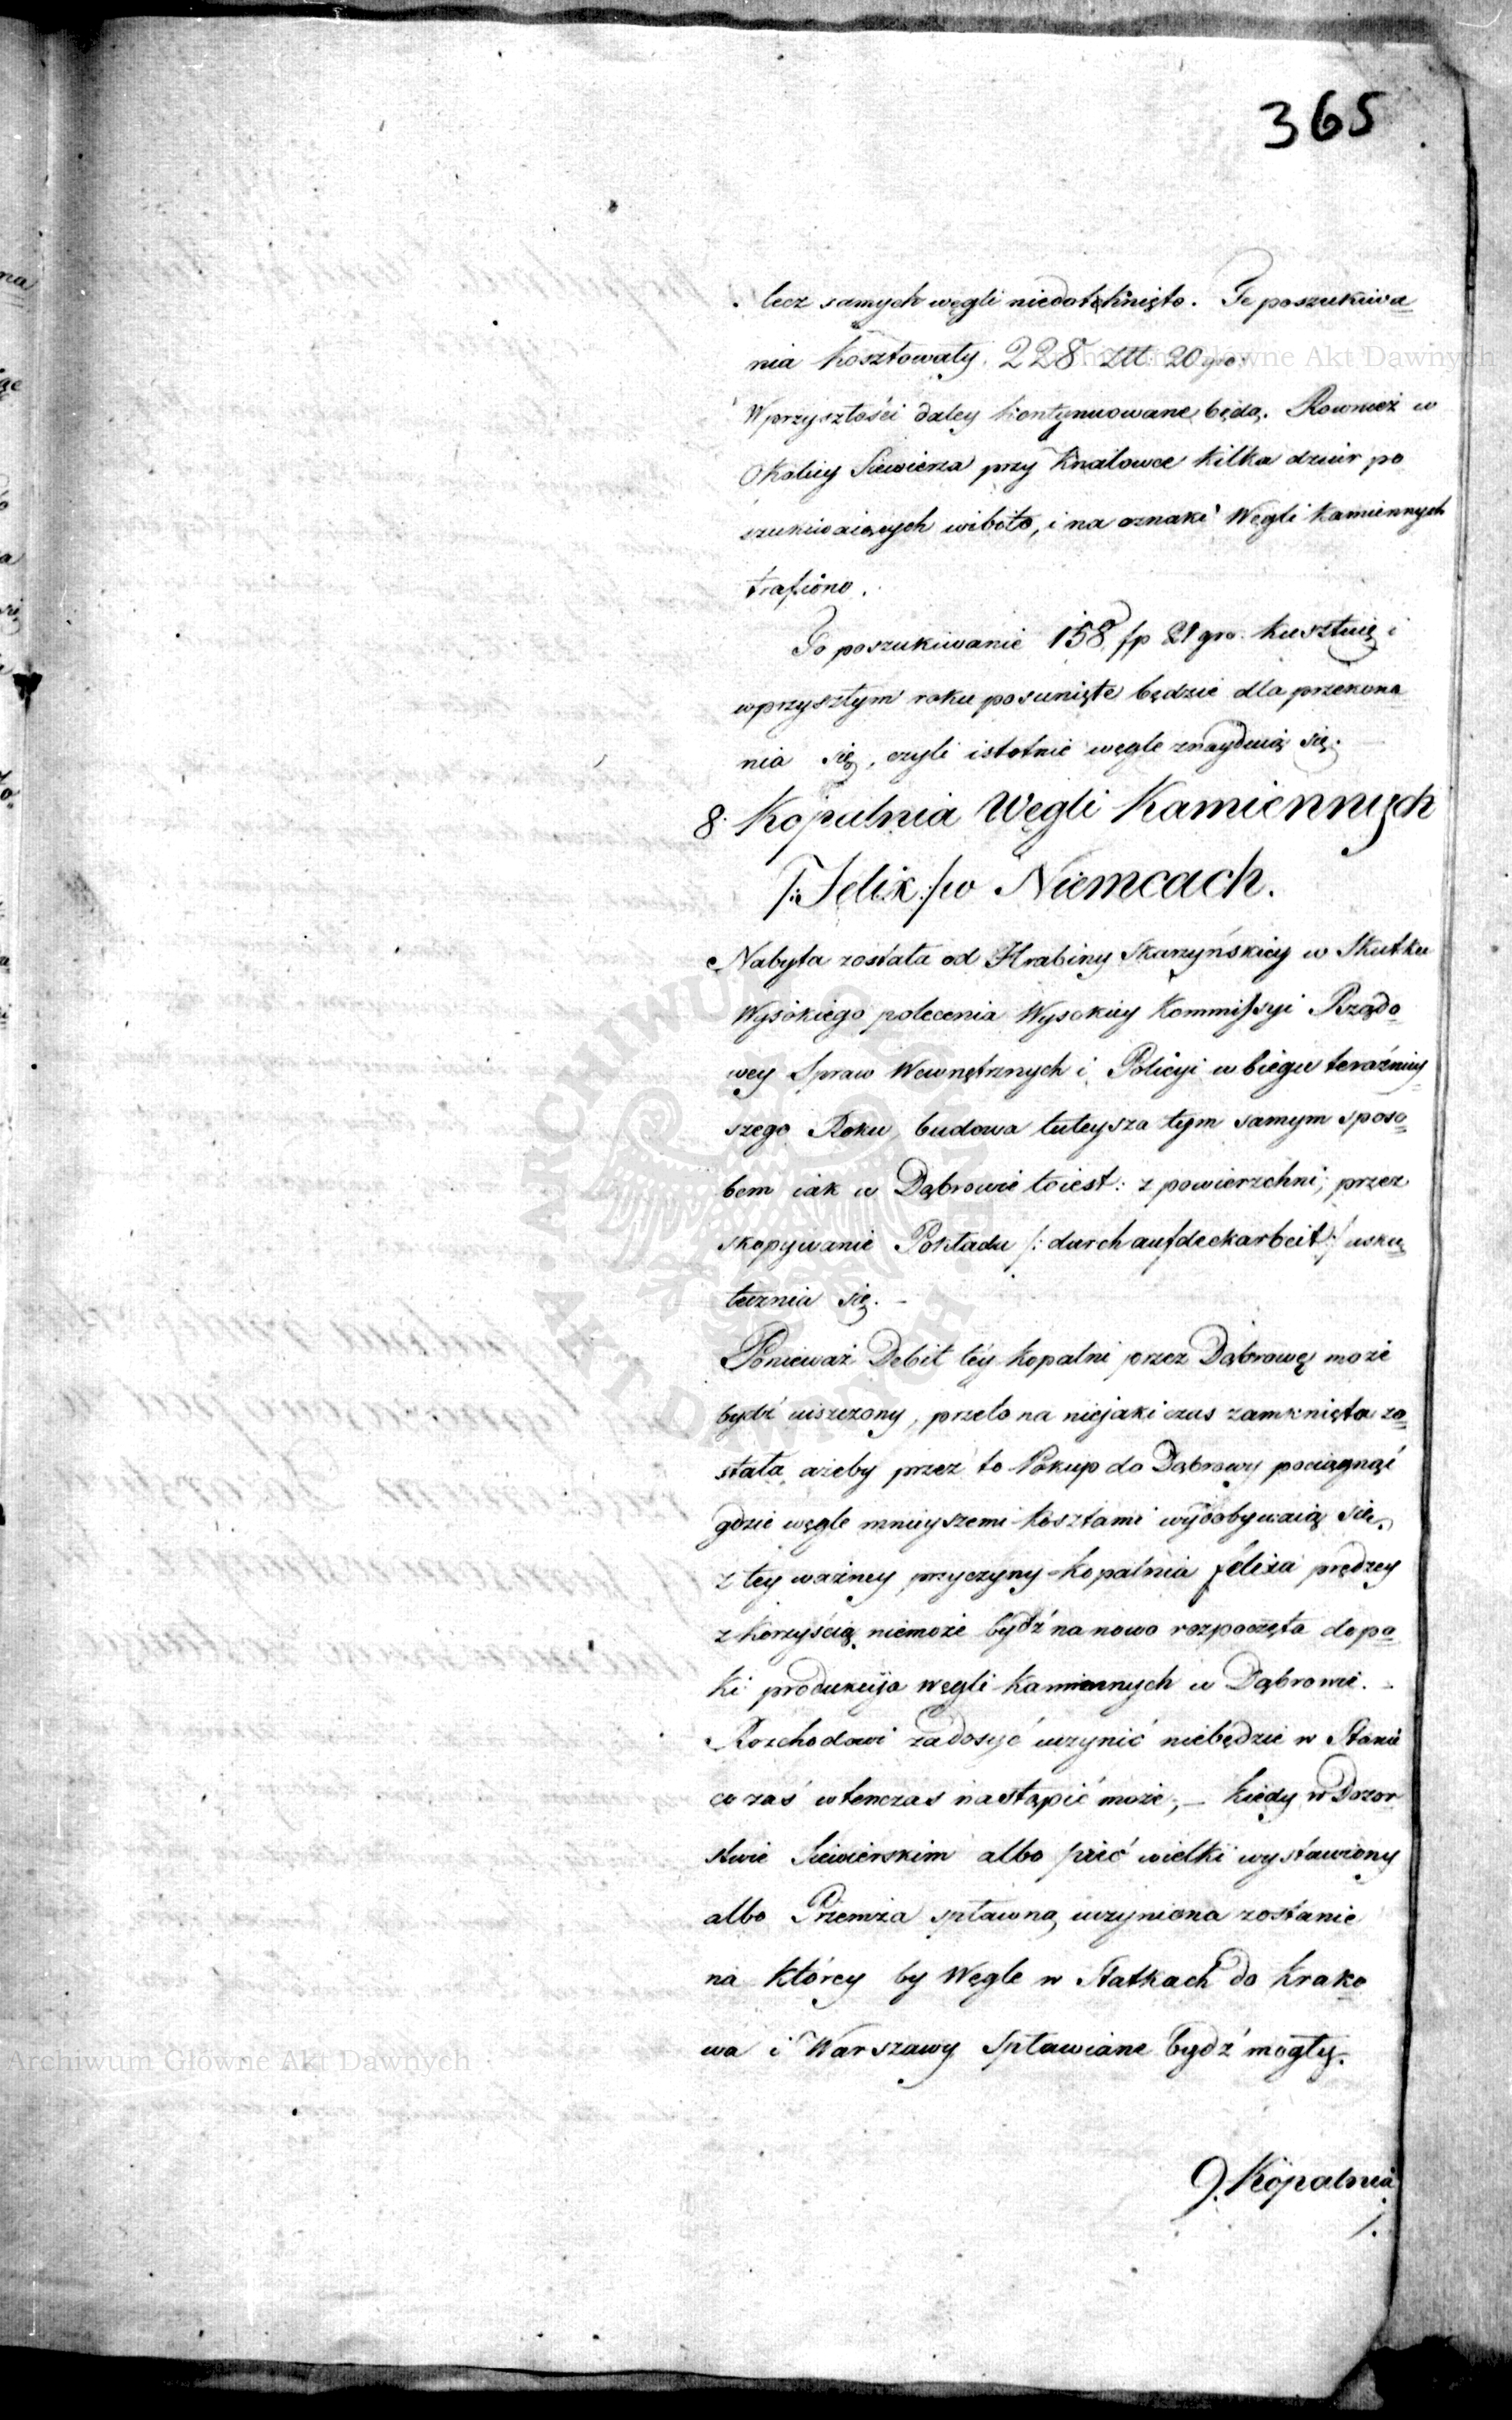 365
lecz samych węgli niedotchnięto. Te poszukiwa
nia kosztowały 228 Złł 20 gro.
W przyszłości daley kontynuowane będą. Rownież w
Okolicy Siewierza przy Knalowce kilka dziur po
szukiwaiących wibito, i na oznaki Węgli kamiennych
trafiono.
To poszukiwanie 158 fp 21 gro. kusztuię i
wprzyszłym roku posunięte będzie dla przekona
nia się, czyli istotnie węgle znayduią się.
8. Kopalnia Węgli Kamiennych
/: Felix :/ w Niemcach.
Nabyta została od Hrabiny Skarzyńskiey w Skutku
Wysokiego polecenia Wysokiey Kommissyi Rządo
wey Spraw Wewnętrznych i Policyi w biegu teraźniey
szego Roku, budowa tuteysza tym samym sposo
bem iak w Dąbrowie toiest: z powierzchni, przez
skopywanie Pokładu /: durch aufdeckarbeit :/ usku
tecznia się. –
Ponieważ Debit téy kopalni przez Dąbrowę może
bydź uiszczony, przeto na niejaki czas zamknięta zo
stała ażeby przez to Pokup do Dąbrowy pociągnąć
gdzie węgle mnieyszemi kosztami wydobywaią się,
z tey ważney przyczyny kopalnia felixa prędzey
z korzyścią niemoże bydź na nowo rozpoczęta dopo
ki produkcyja węgli kamiennych w Dąbrowie. –
Rozchodowi zadosyć uczynić niebędzie w Stanie
co zaś wtenczas nastąpić może, – kiedy w Dozor
stwie Siewierskim albo piec wielki wystawiony
albo Przemza spławną uczyniona zostanie
na którey by Węgle w Statkach do Krako
wa i Warszawy Spławiane bydź mogły.
9. Kopalnia
/.
Archiwum Główne Akt Dawnych
Archiwum Główne Akt Dawnych
ARCHIWUM GŁÓWNE AKT DAWNYCH